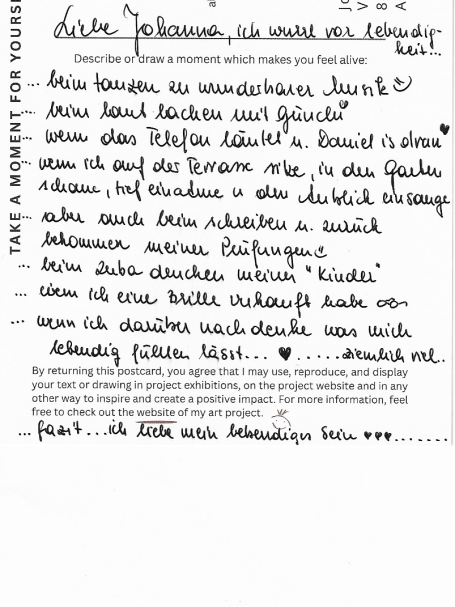 Liebe Johanna, ich wurre vor lebendig-
heit...
Describe or draw a moment which makes you feel alive:
TAKE A MOMENT FOR YOURSE
... beim tanzen zu wunderbarer Musik
... beim laut lachen mit
... wenn das Telefon läutet u. Daniel is dran
... wenn ich auf der Terrasse sitze, in den Garten
schaue, tief einadme u den Anblick einsauge
... aber auch beim schreiben u. zurück
bekommen meiner Prüfungen
... beim meiner "Kinder"
... wenn ich eine Brille verkauft habe
... wenn ich darüber nachdenke was mich
lebendig fühlen lässt... ♥ ..... ziemlich viel..
By returning this postcard, you agree that I may use, reproduce, and display
your text or drawing in project exhibitions, on the project website and in any
other way to inspire and create a positive impact. For more information, feel
free to check out the website of my art project.
... fazit... ich liebe mein lebendiges Sein ♥♥♥.......